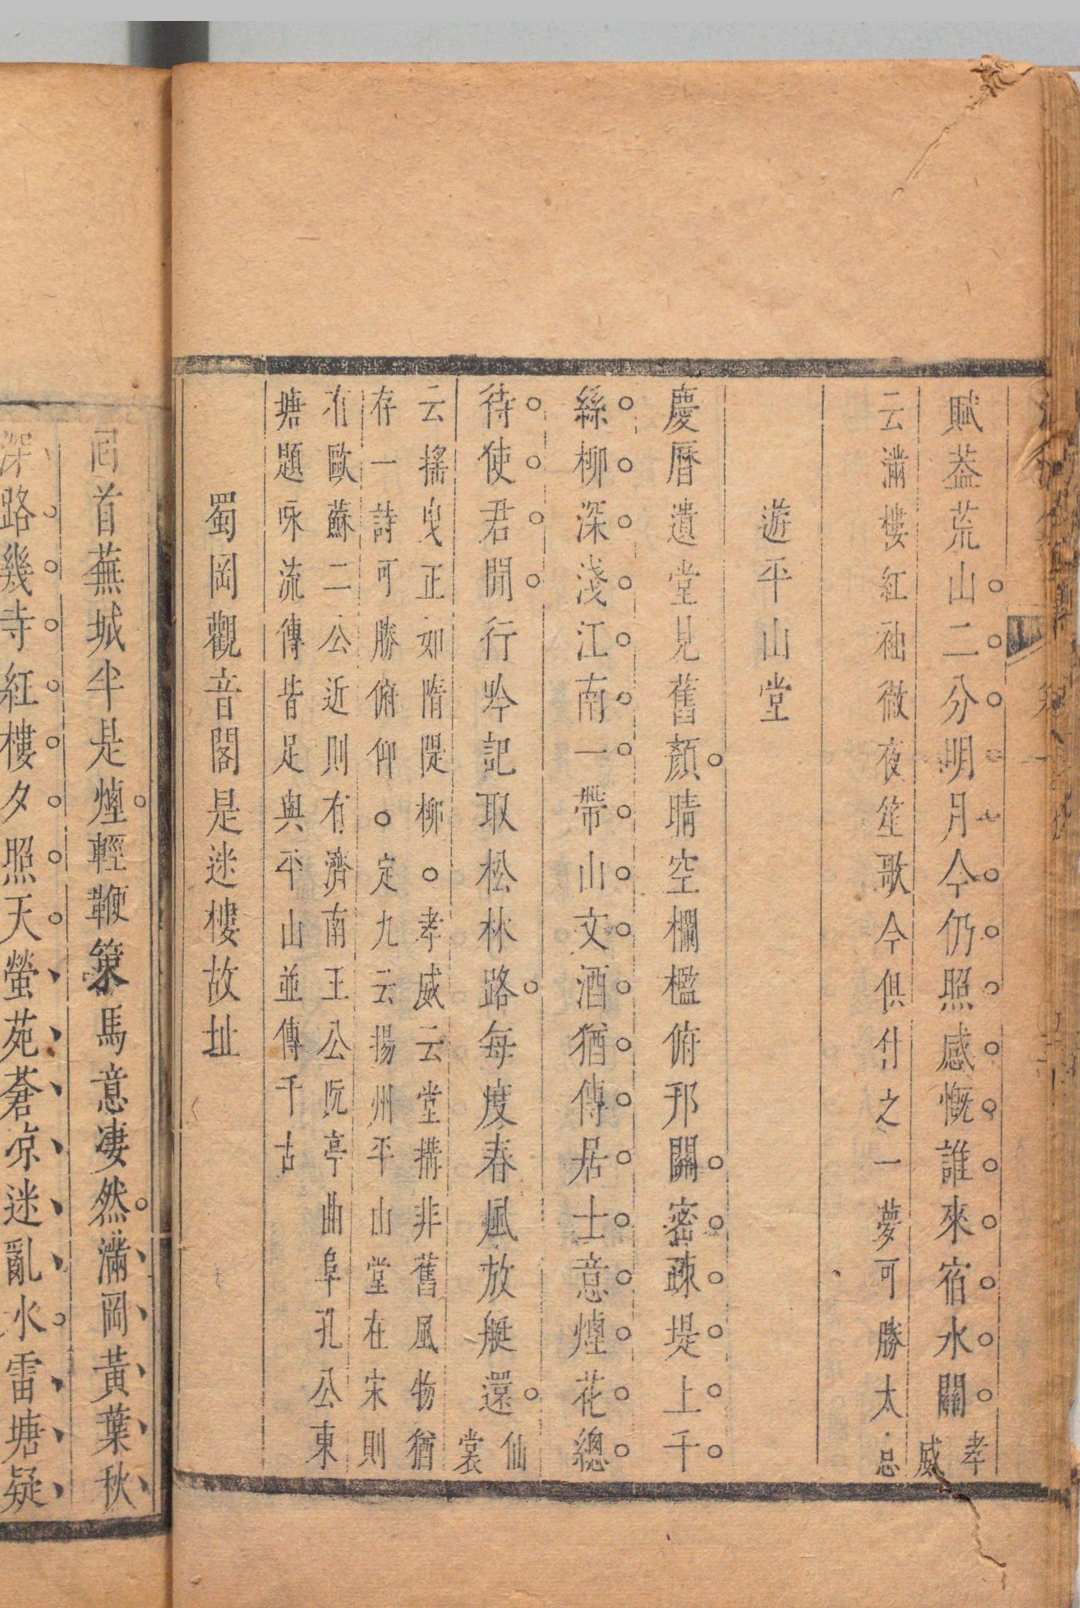 賦葢荒山二分明月今仍照感慨誰來宿水關孝威
云滿樓紅袖徹夜笙歌今俱付之一夢可勝太息
遊平山堂
慶曆遺堂見舊顏晴空欄檻俯邗關密疎堤上千
絲柳深淺江南一帶山文酒猶傳居士意煙花總
待使君閒行吟記取松林路每度春風放艇還仙裳
云搖曳正如隋隄柳○孝威云堂搆非舊風物猶
存一詩可勝俯仰○定九云揚州平山堂在宋則
有歐蘇二公近則有濟南王公阮亭曲阜孔公東
塘題咏流傳皆足與平山並傳千古
蜀岡觀音閣是迷樓故址
回首蕪城半是煙輕鞭策馬意凄然滿岡黃葉秋
深路幾寺紅樓夕照天螢苑蒼凉迷亂水雷塘疑